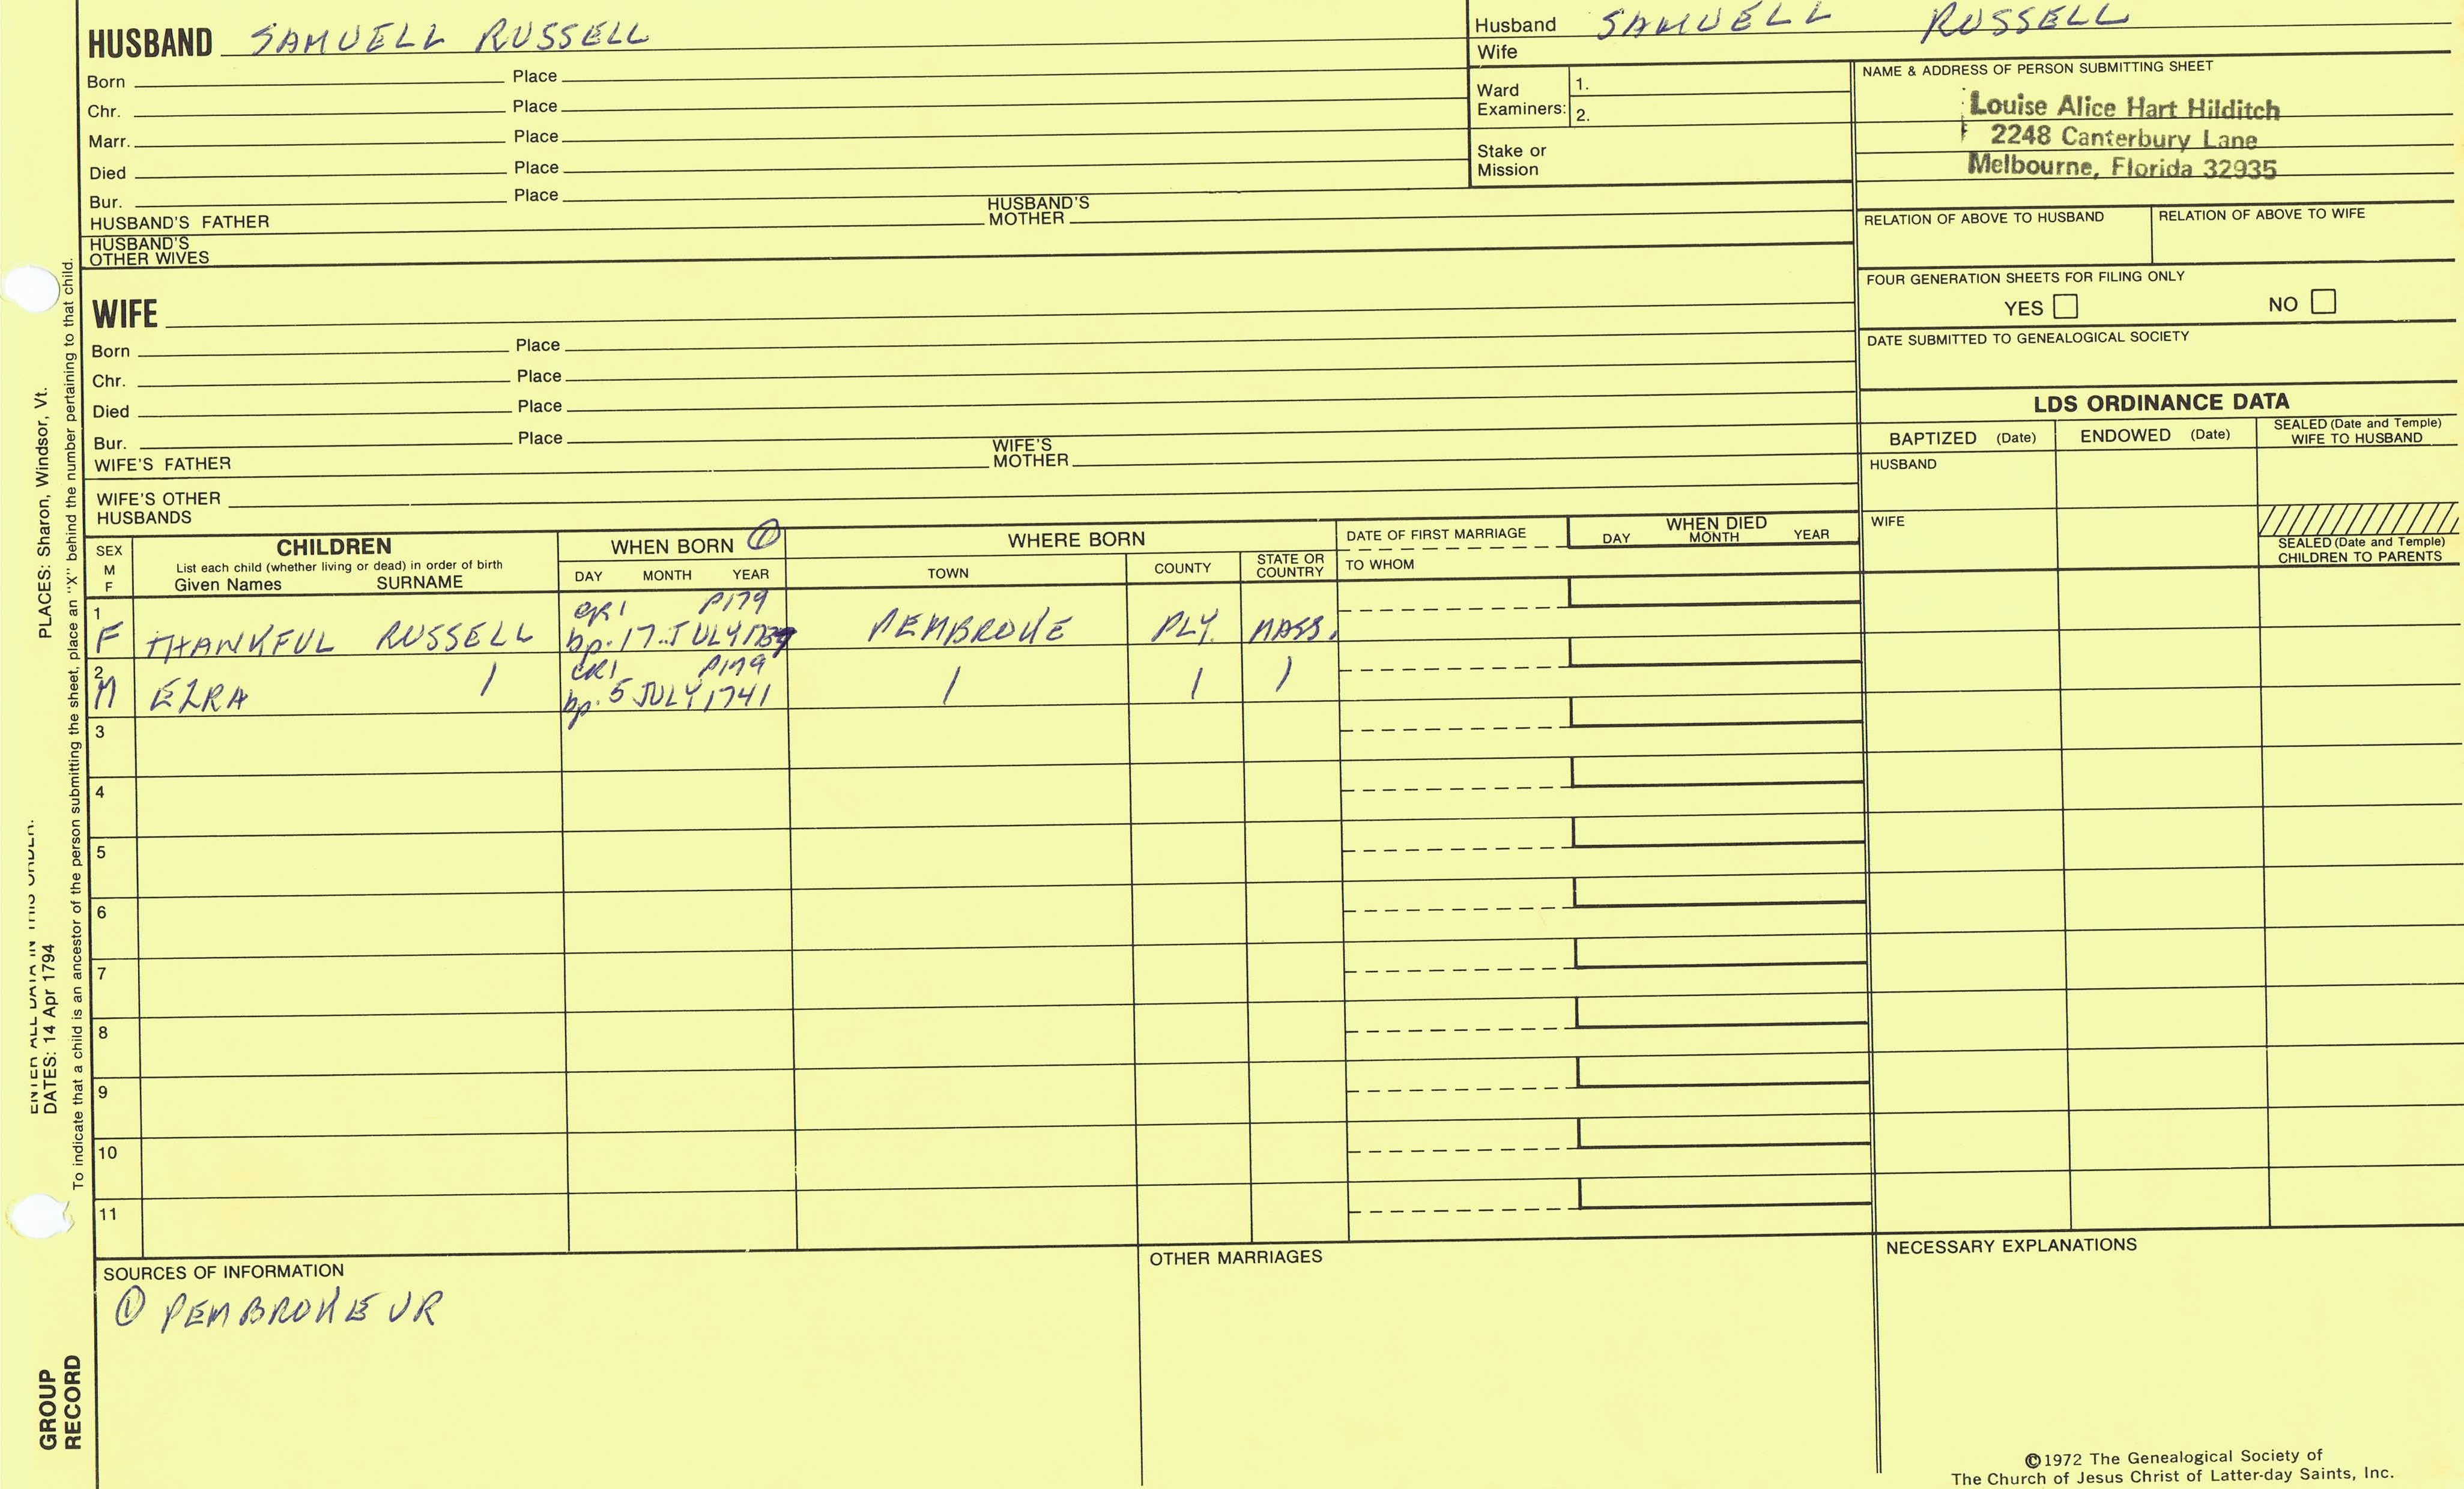 HUSBAND SAMUELL RUSSELL
Born Place
Chr. Place
Marr. Place
Died Place
Bur. Place
HUSBAND'S FATHER HUSBAND'S MOTHER
HUSBAND'S OTHER WIVES
WIFE
Born Place
Chr. Place
Died Place
Bur. Place
WIFE'S FATHER WIFE'S MOTHER
WIFE'S OTHER HUSBANDS
Husband SAMUELL RUSSELL
Wife
Ward Examiners: 1.
2.
Stake or Mission
NAME & ADDRESS OF PERSON SUBMITTING SHEET
Louise Alice Hart Hilditch
2248 Canterbury Lane
Melbourne, Florida 32935
RELATION OF ABOVE TO HUSBAND RELATION OF ABOVE TO WIFE
FOUR GENERATION SHEETS FOR FILING ONLY
YES NO
DATE SUBMITTED TO GENEALOGICAL SOCIETY
LDS ORDINANCE DATA
BAPTIZED (Date) ENDOWED (Date) SEALED (Date and Temple) WIFE TO HUSBAND
HUSBAND
WIFE
SEALED (Date and Temple) CHILDREN TO PARENTS
SEX M F
CHILDREN
List each child (whether living or dead) in order of birth
Given Names SURNAME
WHEN BORN ①
DAY MONTH YEAR
WHERE BORN
TOWN COUNTY STATE OR COUNTRY
DATE OF FIRST MARRIAGE
TO WHOM
WHEN DIED
DAY MONTH YEAR
1 CR1 P179
F THANKFUL RUSSELL bp. 17 JULY 1739 PEMBROKE PLY. MASS.
2 CR1 P179
M EZRA / bp. 5 JULY 1741 / / /
3
4
5
6
7
8
9
10
11
SOURCES OF INFORMATION
① PEMBROKE VR
OTHER MARRIAGES
NECESSARY EXPLANATIONS
©1972 The Genealogical Society of
The Church of Jesus Christ of Latter-day Saints, Inc.
PLACES: Sharon, Windsor, Vt.
To indicate that a child is an ancestor of the person submitting the sheet, place an "X" behind the number pertaining to that child.
ENTER ALL DATA IN THIS ORDER:
DATES: 14 Apr 1794
GROUP
RECORD